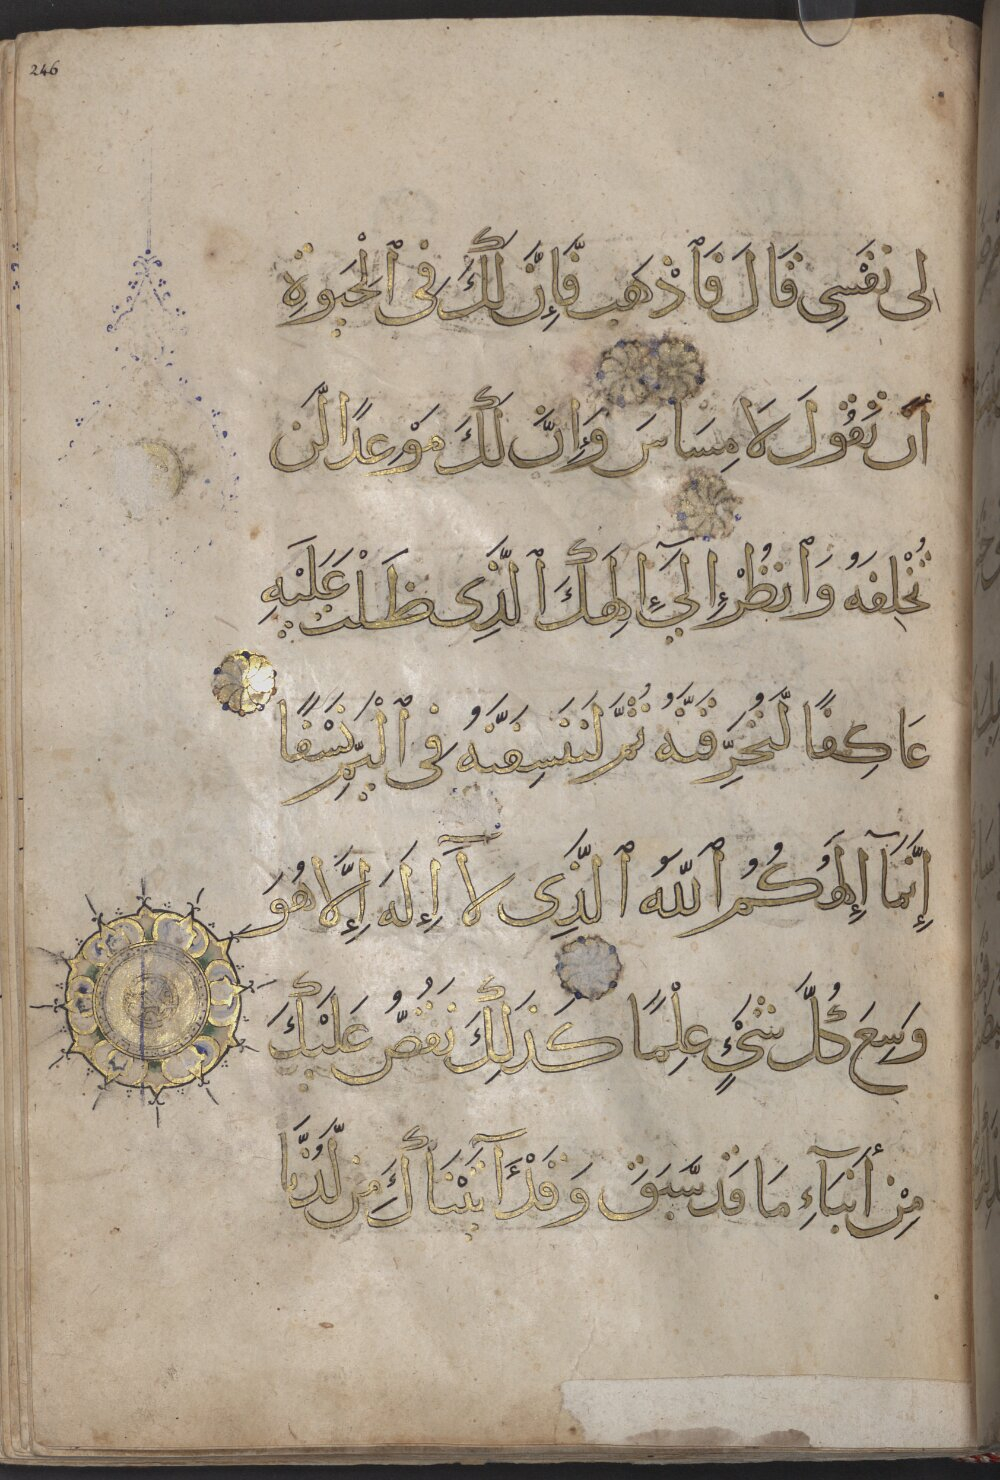 246
لِى نَفْسِى قَالَ فَٱذْهَبْ فَإِنَّ لَكَ فِى ٱلْحَيَوٰةِ
أَن تَقُولَ لَا مِسَاسَ وَإِنَّ لَكَ مَوْعِدًا لَّن
تُخْلَفَهُ وَٱنظُرْ إِلَىٰٓ إِلَٰهِكَ ٱلَّذِى ظَلْتَ عَلَيْهِ
عَاكِفًا لَّنُحَرِّقَنَّهُ ثُمَّ لَنَنسِفَنَّهُ فِى ٱلْيَمِّ نَسْفًا
إِنَّمَآ إِلَٰهُكُمُ ٱللَّهُ ٱلَّذِى لَآ إِلَٰهَ إِلَّا هُوَ
وَسِعَ كُلَّ شَىْءٍ عِلْمًا كَذَٰلِكَ نَقُصُّ عَلَيْكَ
مِنْ أَنبَآءِ مَا قَد سَّبَقَ وَقَدْ ءَآتَيْنَاكَ مِن لَّدُنَّا